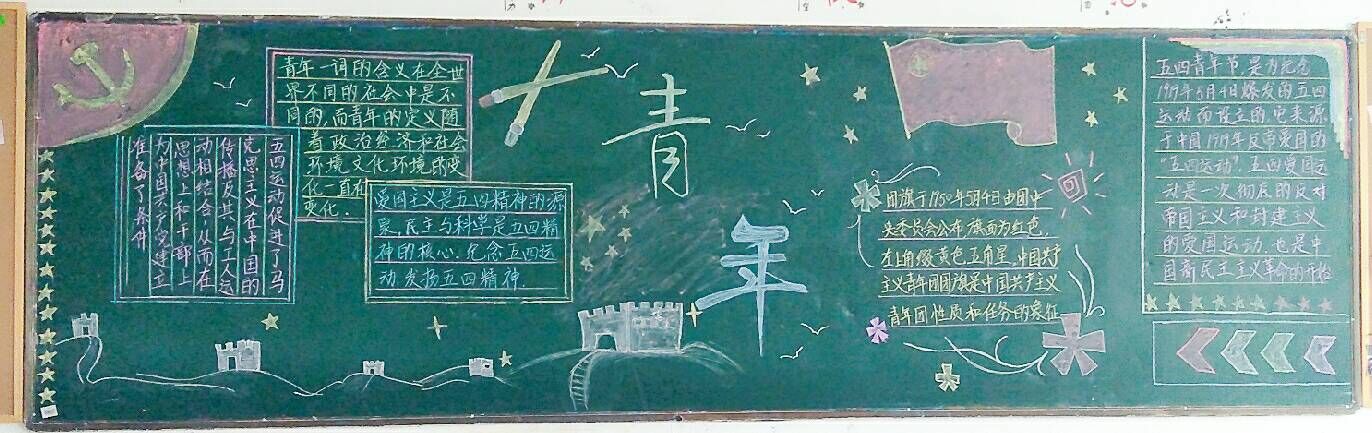 青年一词的含义在全世
界不同的社会中是不
同的,而青年的定义随
着政治经济和社会
环境文化环境的变
化一直在
变化.
五四运动促进了马
克思主义在中国的
传播及其与工人运
动相结合,从而在
思想上和干部上
为中国共产党建立
准备了条件
爱国主义是五四精神的源
泉,民主与科学是五四精
神的核心.纪念五四运
动发扬五四精神.
青
年
团旗于1950年5月4日由团中
央委员会公布.旗面为红色,
左上角缀黄色五角星,中国共产
主义青年团团旗是中国共产主义
青年团性质和任务的象征
五四青年节,是为纪念
1919年5月4日爆发的五四
运动而设立的,它来源
于中国1919年反帝爱国的
"五四运动",五四爱国运
动是一次彻底的反对
帝国主义和封建主义
的爱国运动.也是中
国新民主主义革命的开始